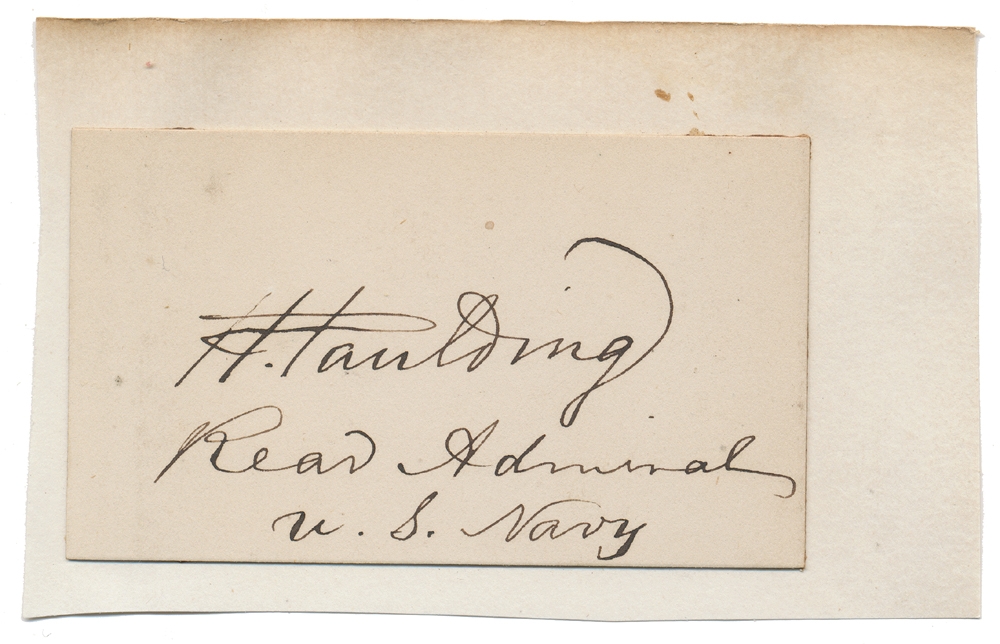 H. Paulding
Rear Admiral
U. S. Navy